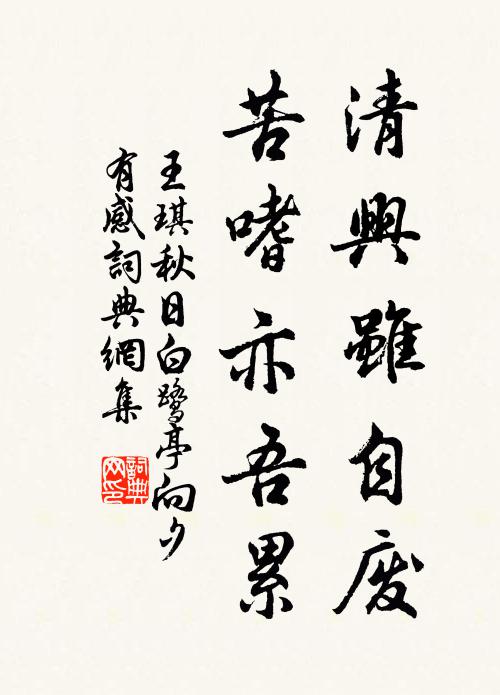 清興雖自廢
苦嗜亦吾累
王琪秋日白鷺亭向夕
有感詞典網集
詞典
网印